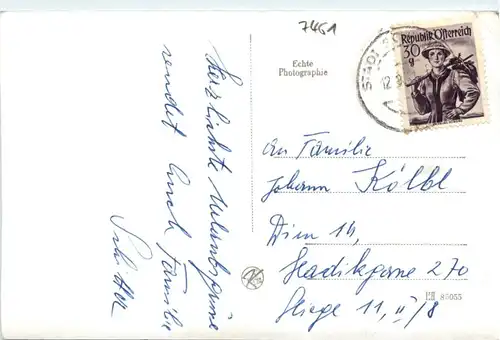 7461
Echte
Photographie
STADL
12.8
Republik Österreich
30
g
Herzlichste Urlaubsgrüsse
sendet Euch Familie
an Familie
Johann Kölbl
Wien 14,
270
Stiege 11, II/8
85055